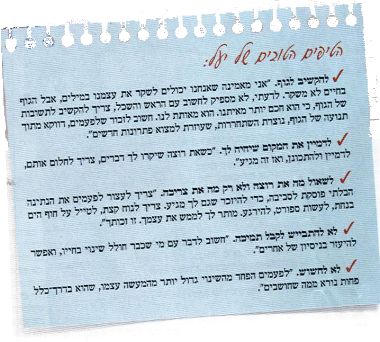 הטיפים הטובים של יעל:
להקשיב לגוף. "אני מאמינה שאנחנו יכולים לשקר את עצמנו במילים, אבל הגוף
בחיים לא משקר. לדעתי, לא מספיק לחשוב עם הראש והשכל, צריך להקשיב לתשובות
של הגוף, כי הוא חכם יותר מאיתנו. הוא מאותת לנו. חשוב לזכור שלפעמים, דווקא מתוך
תנועה של הגוף, נוצרת השתחררות, שעוזרת למצוא פתרונות חדשים".
לדמיין את המקום שיהיה לך. "כשאת רוצה שיקרו לך דברים, צריך לחלום אותם,
לדמיין ולהתכוונן, ואז זה מגיע".
לשאול מה את רוצה ולא רק מה את צריכה. "צריך לעצור לפעמים את הנתינה
הבלתי פוסקת לסביבה, כדי להיזכר שגם לך מגיע. צריך לנוח קצת, לטייל על חוף הים
בנחת, לעשות ספורט, להירגע. מותר לך לממש את עצמך. זו זכותך".
לא להתבייש לקבל תמיכה. "חשוב לדבר עם מי שכבר חולל שינוי בחייו, ואפשר
להיעזר בניסיון של אחרים".
לא לחשוש. "לפעמים הפחד מהשינוי גדול יותר מהמעשה עצמו, שהוא בדרך-כלל
פחות נורא ממה שחושבים".